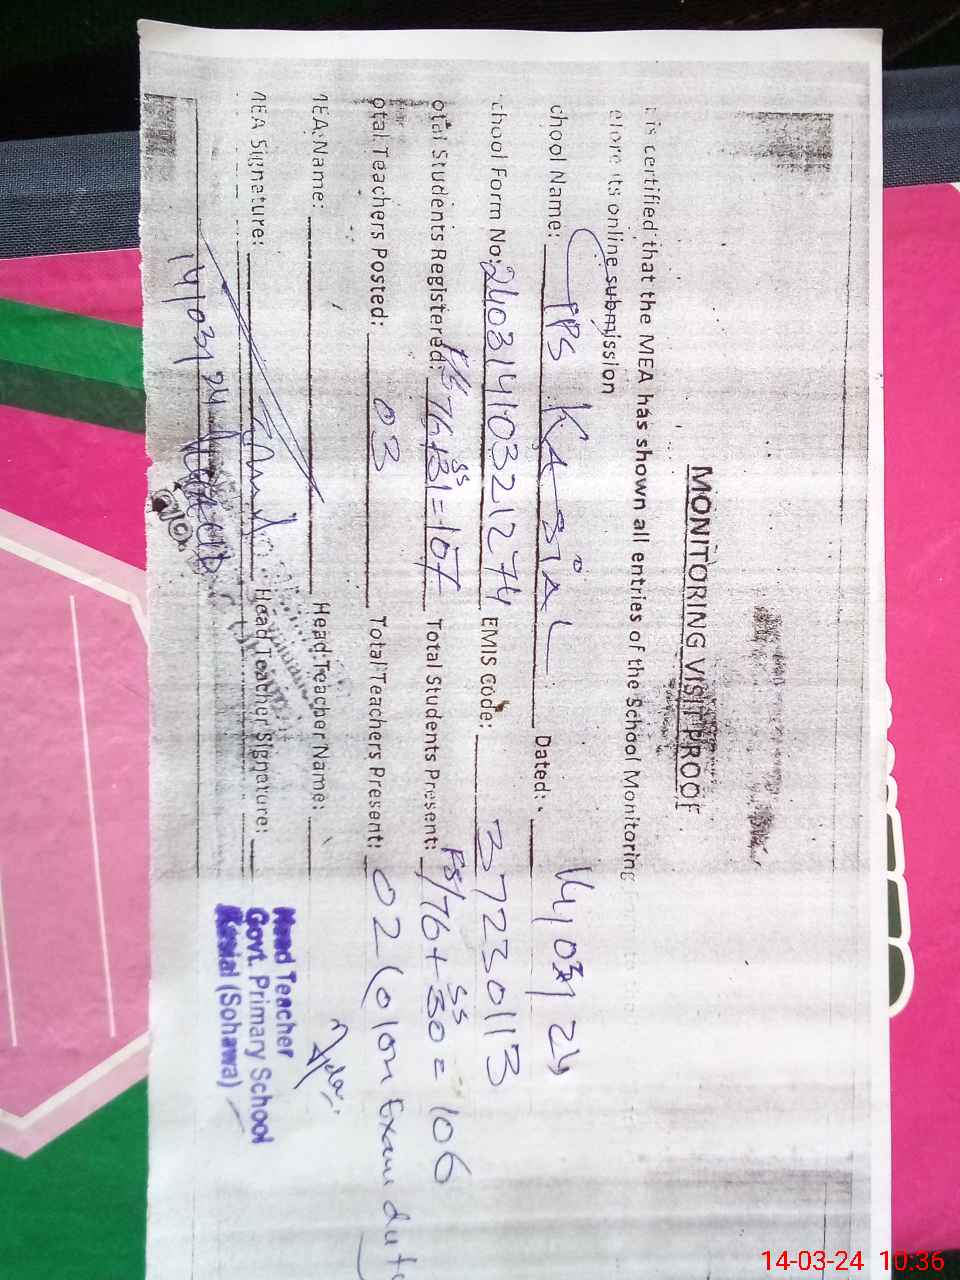 MONITORING VISIT PROOF
is certified that the MEA has shown all entries of the School Monitoring
efore its online submission
chool Name: GPS KASIAL Dated: 14/03/24
chool Form No: 24031410321274 EMIS Code: 37230113
otal Students Registered: F/S 76+31 SS =107 Total Students Present: FS/76+30 SS = 106
otal Teachers Posted: 03 Total Teachers Present: 02 (01 on Exam duty
MEA Name: Head Teacher Name:
MEA Signature: Head Teacher Signature:
14/03/24
Head Teacher
Govt. Primary School
Kasial (Sohawa)
14-03-24 10:36